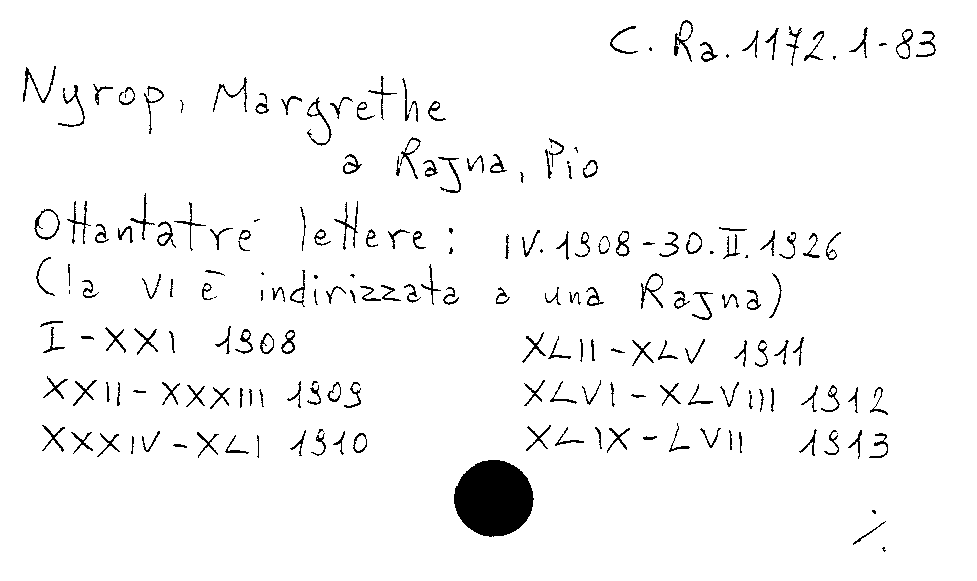 C. Ra. 1172. 1-83
Nyrop, Margrethe
a Rajna, Pio
Ottantatré lettere: IV. 1908-30.II.1926
(la VI è indirizzata a una Rajna)
I-XXI 1908
XXII-XXXIII 1909
XXXIV-XLI 1910
XLII-XLV 1911
XLVI-XLVIII 1912
XLIX-LVII 1913
./.